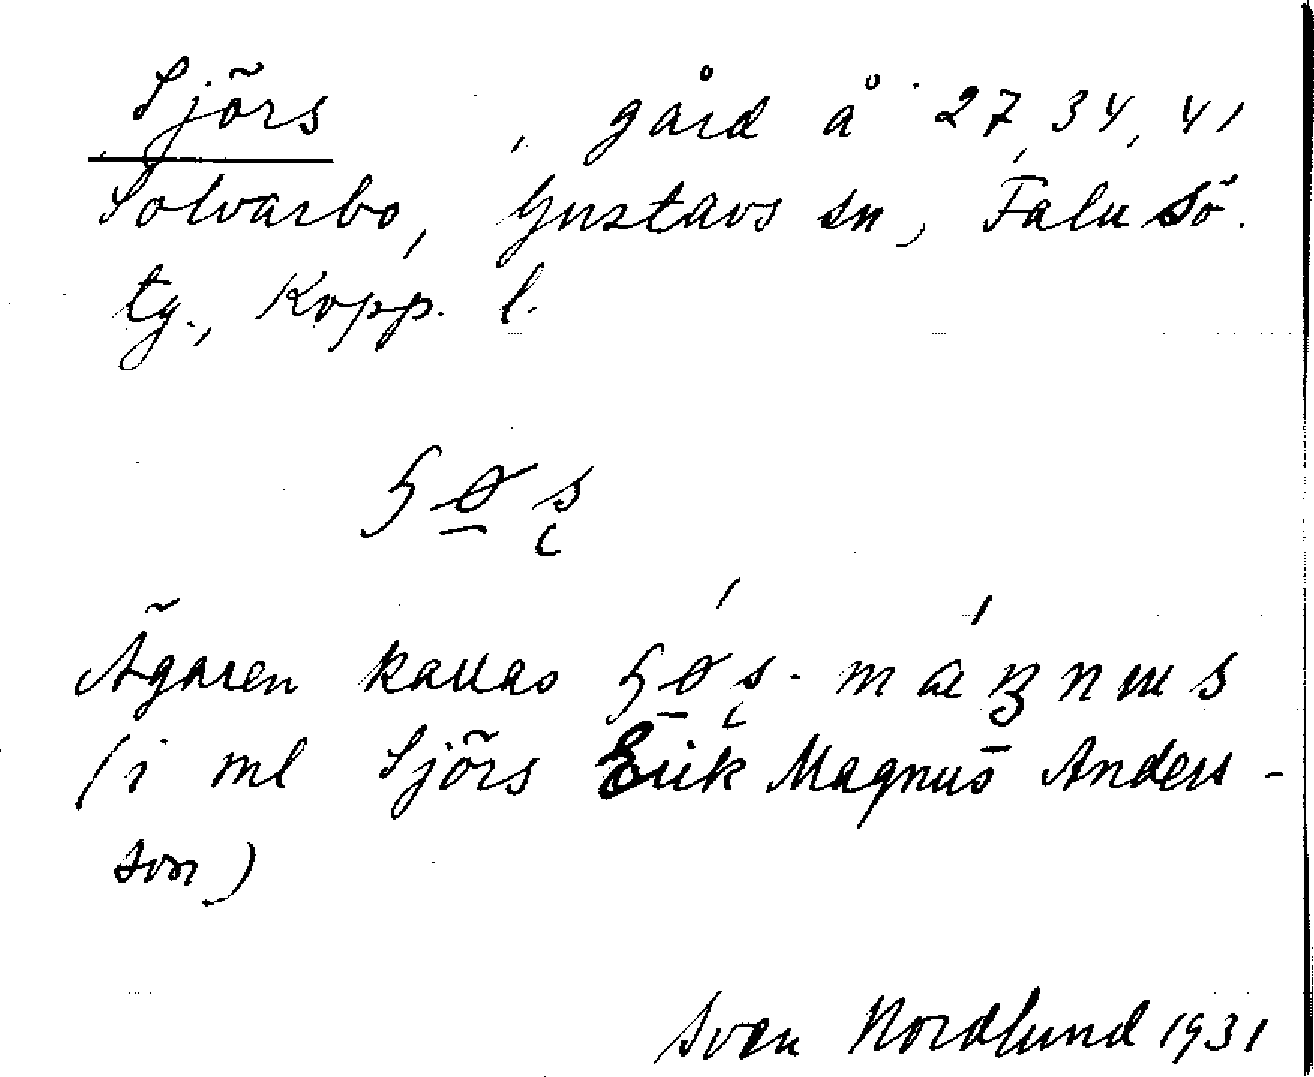 Sjörs, gård å 27, 34, 41
Solvarbo, Gustavs sn, Falu Sö.
tg., Kopp. l.
Ägaren kallas
(i ml Sjörs Erik Magnus Anders-
son)
Sven Nordlund 1931